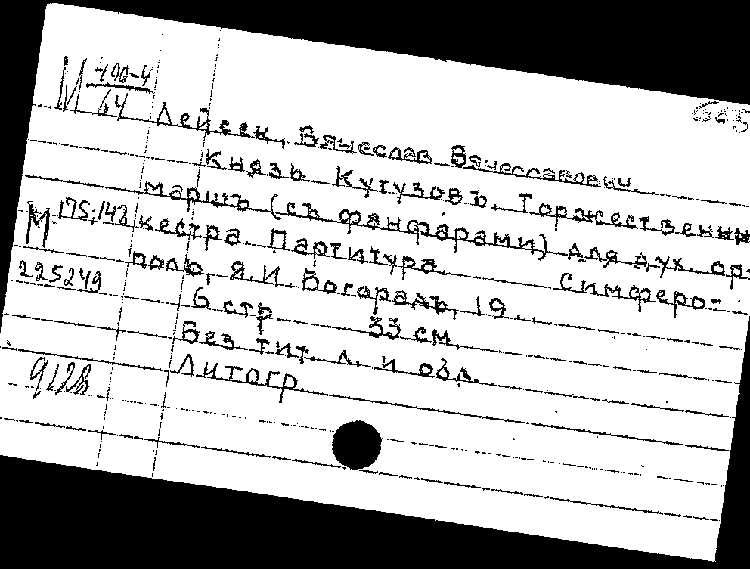 М 490-4
64
665
Лейсек, Вячеслав Вячеславович.
Князь Кутузовъ. Торжественный
маршъ (съ фанфарами) для дух. ор-
М 175;142
кестра. Партитура. Симферо-
225249
поль, Я.И. Богорадъ, 19..
6 стр. 33 см.
Без тит. л. и обл.
9128
Литогр.